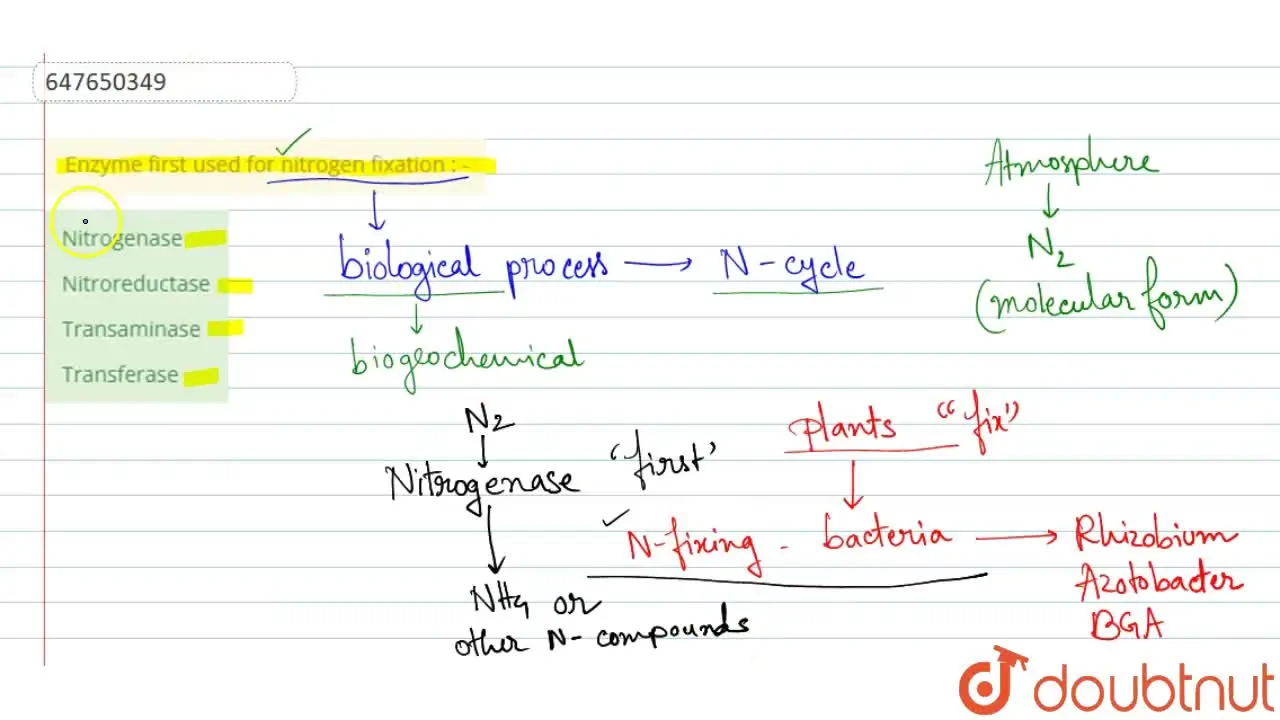 647650349
Enzyme first used for nitrogen fixation : -
Nitrogenase
Nitroreductase
Transaminase
Transferase
biological process → N-cycle
biogeochemical
Atmosphere
N2
(molecular form)
N2
Nitrogenase 'first'
NH4 or
other N-compounds
Plants "fix"
N-fixing - bacteria → Rhizobium
Azotobacter
BGA
doubtnut